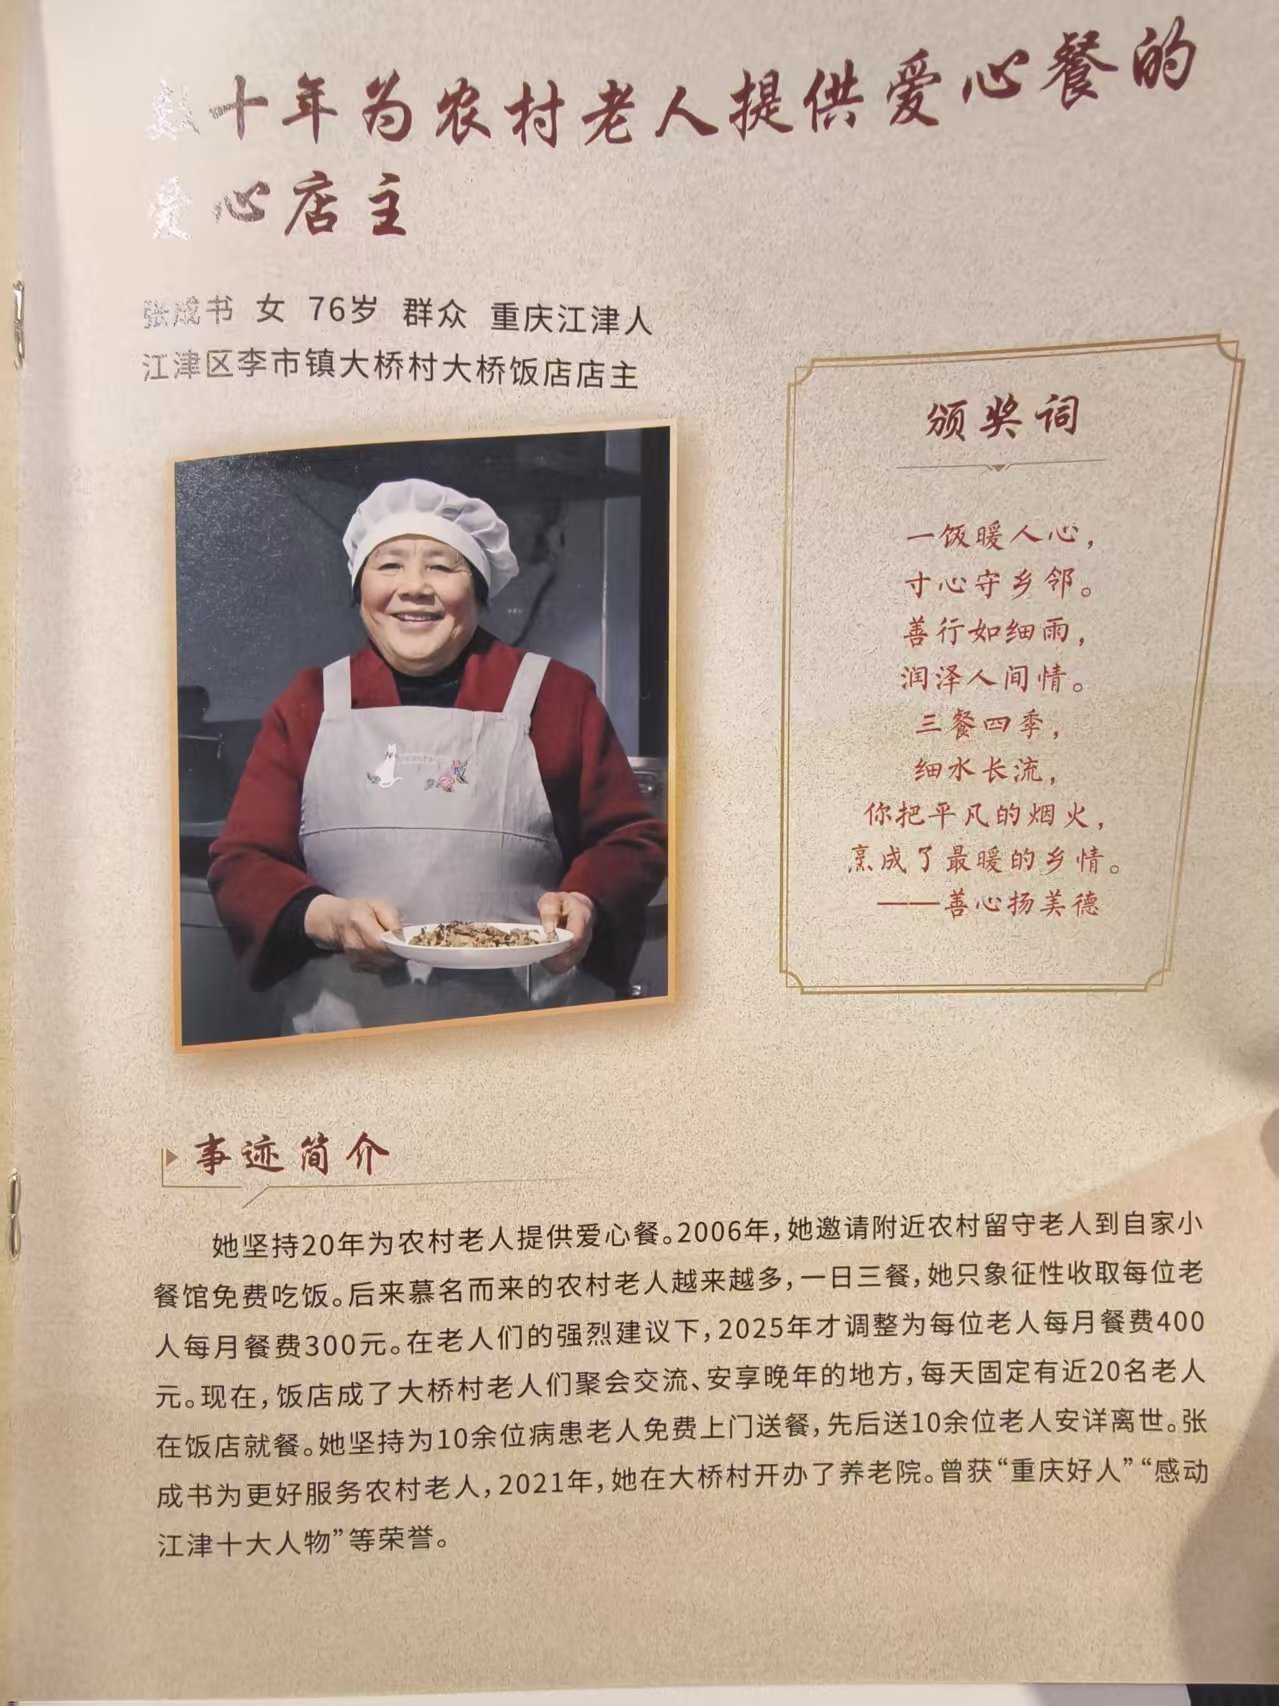 数十年为农村老人提供爱心餐的
爱心店主
张成书 女 76岁 群众 重庆江津人
江津区李市镇大桥村大桥饭店店主
颁奖词
一饭暖人心，
寸心守乡邻。
善行如细雨，
润泽人间情。
三餐四季，
细水长流，
你把平凡的烟火，
烹成了最暖的乡情。
——善心扬美德
事迹简介
她坚持20年为农村老人提供爱心餐。2006年，她邀请附近农村留守老人到自家小
餐馆免费吃饭。后来慕名而来的农村老人越来越多，一日三餐，她只象征性收取每位老
人每月餐费300元。在老人们的强烈建议下，2025年才调整为每位老人每月餐费400
元。现在，饭店成了大桥村老人们聚会交流、安享晚年的地方，每天固定有近20名老人
在饭店就餐。她坚持为10余位病患老人免费上门送餐，先后送10余位老人安详离世。张
成书为更好服务农村老人，2021年，她在大桥村开办了养老院。曾获“重庆好人”“感动
江津十大人物”等荣誉。